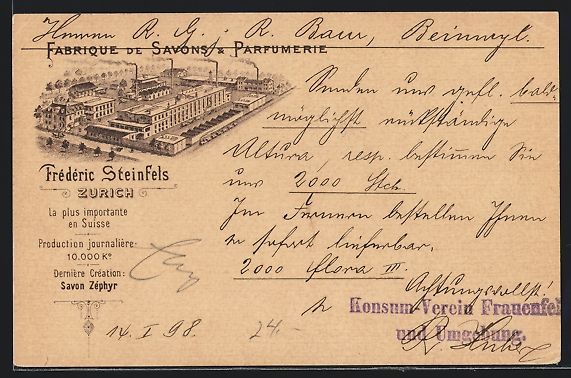 Herren R. G. & R. Baur, Beinwyl.
FABRIQUE DE SAVONS & PARFUMERIE
Frédéric Steinfels
ZURICH
La plus importante
en Suisse
Production journalière:
10.000 Kº
Dernière Création:
Savon Zéphyr
14. I 98.
24.-
Senden uns gefl. bald-
möglichst rückständige
Altura, resp. bestimmen Sie
uns 2000 Stck.
Im Fernern bestellen Ihnen
sofort lieferbar,
2000 Flora III.
Achtungsvollst!
Konsum-Verein Frauenfeld
und Umgebung.
R. Huber